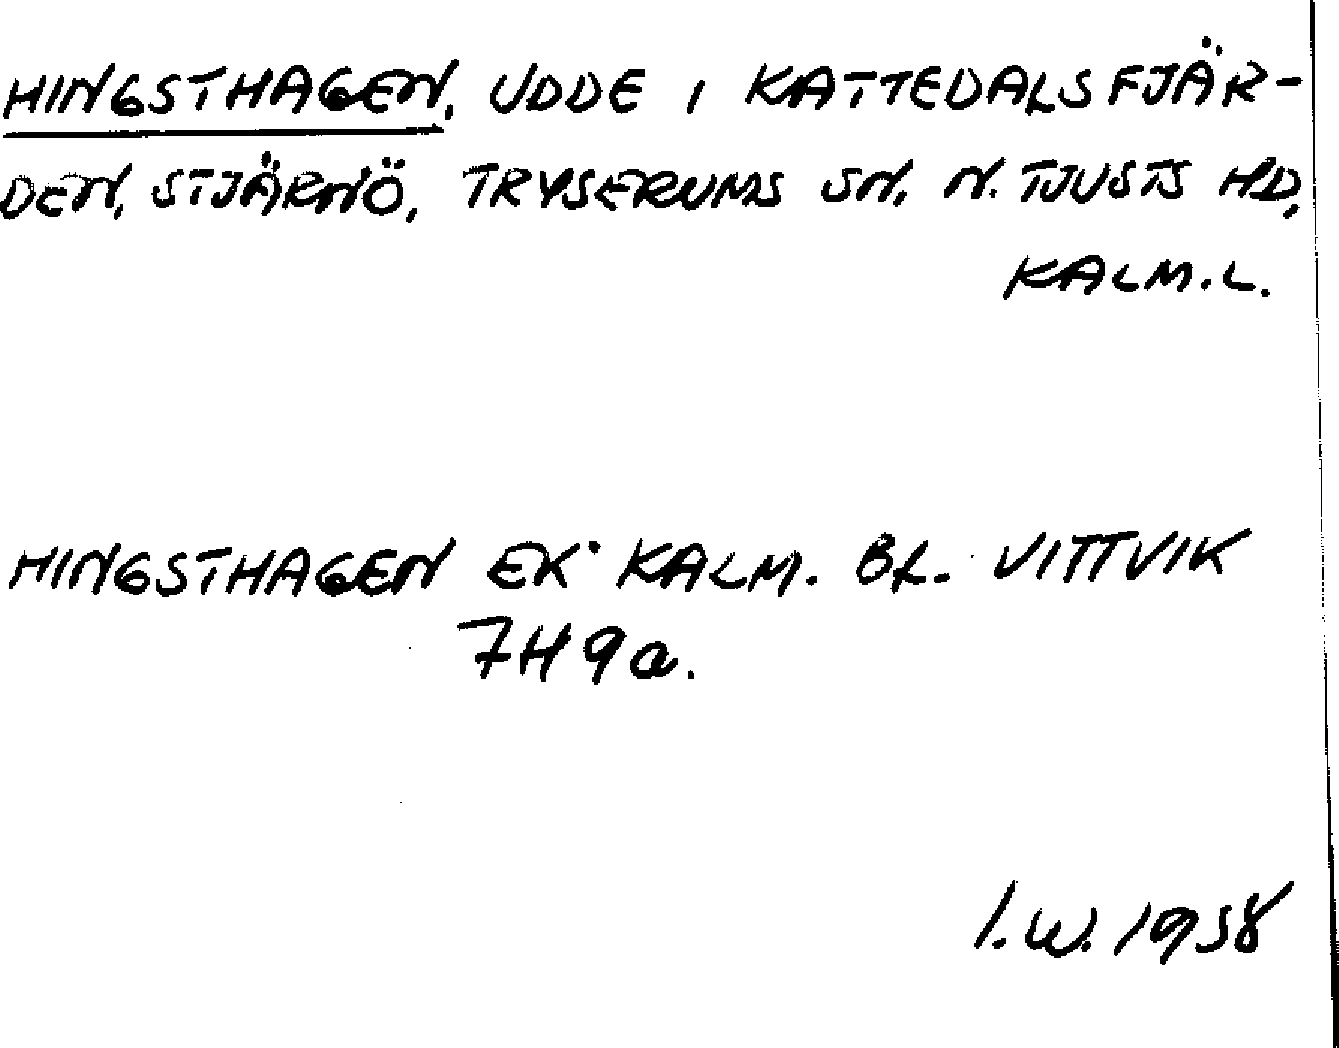 HINGSTHAGEN, UDDE I KATTEDALSFJÄR-
DEN, STJÄRNÖ, TRYSERUMS SN, N. TJUSTS HD,
KALM.L.
HINGSTHAGEN EK KALM. Bl. VITTVIK
7H9a.
I.W. 1958